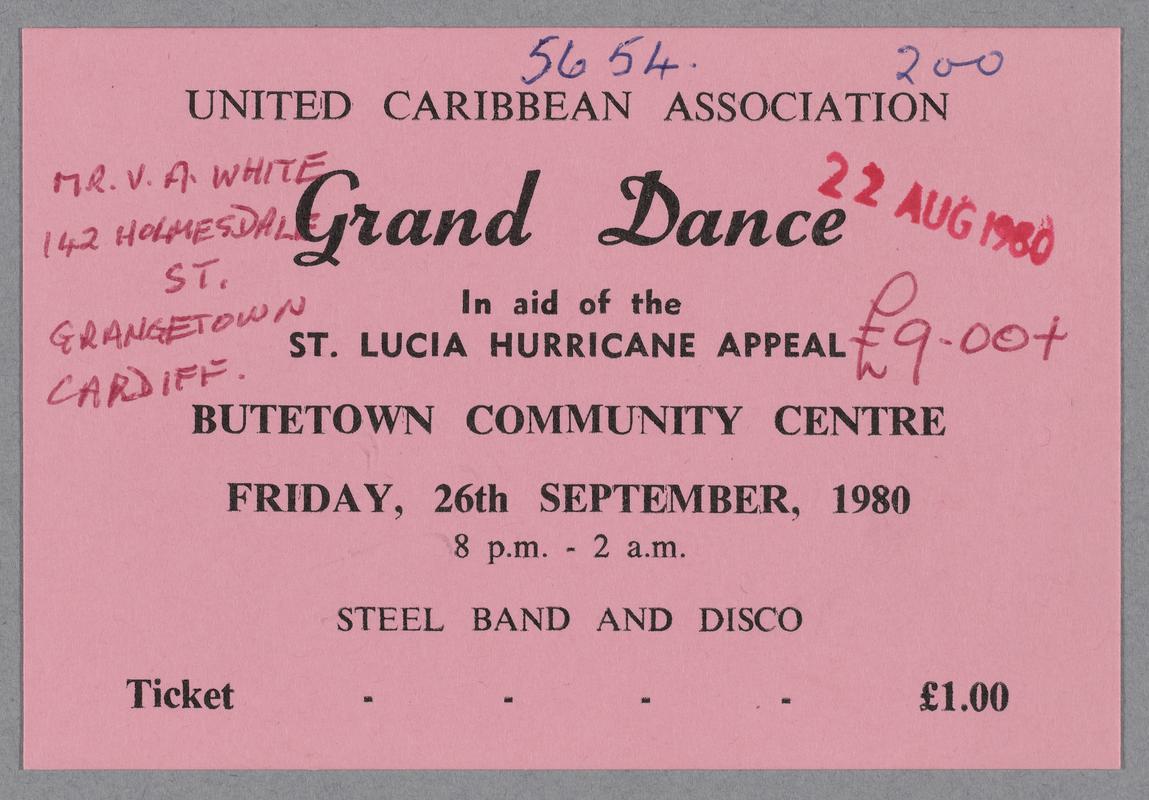 5654.
200
UNITED CARIBBEAN ASSOCIATION
MR. V. A. WHITE
142 HOLMESDALE
ST.
GRANGETOWN
CARDIFF.
Grand Dance
22 AUG 1980
In aid of the
ST. LUCIA HURRICANE APPEAL
£9-00+
BUTETOWN COMMUNITY CENTRE
FRIDAY, 26th SEPTEMBER, 1980
8 p.m. - 2 a.m.
STEEL BAND AND DISCO
Ticket - - - - £1.00